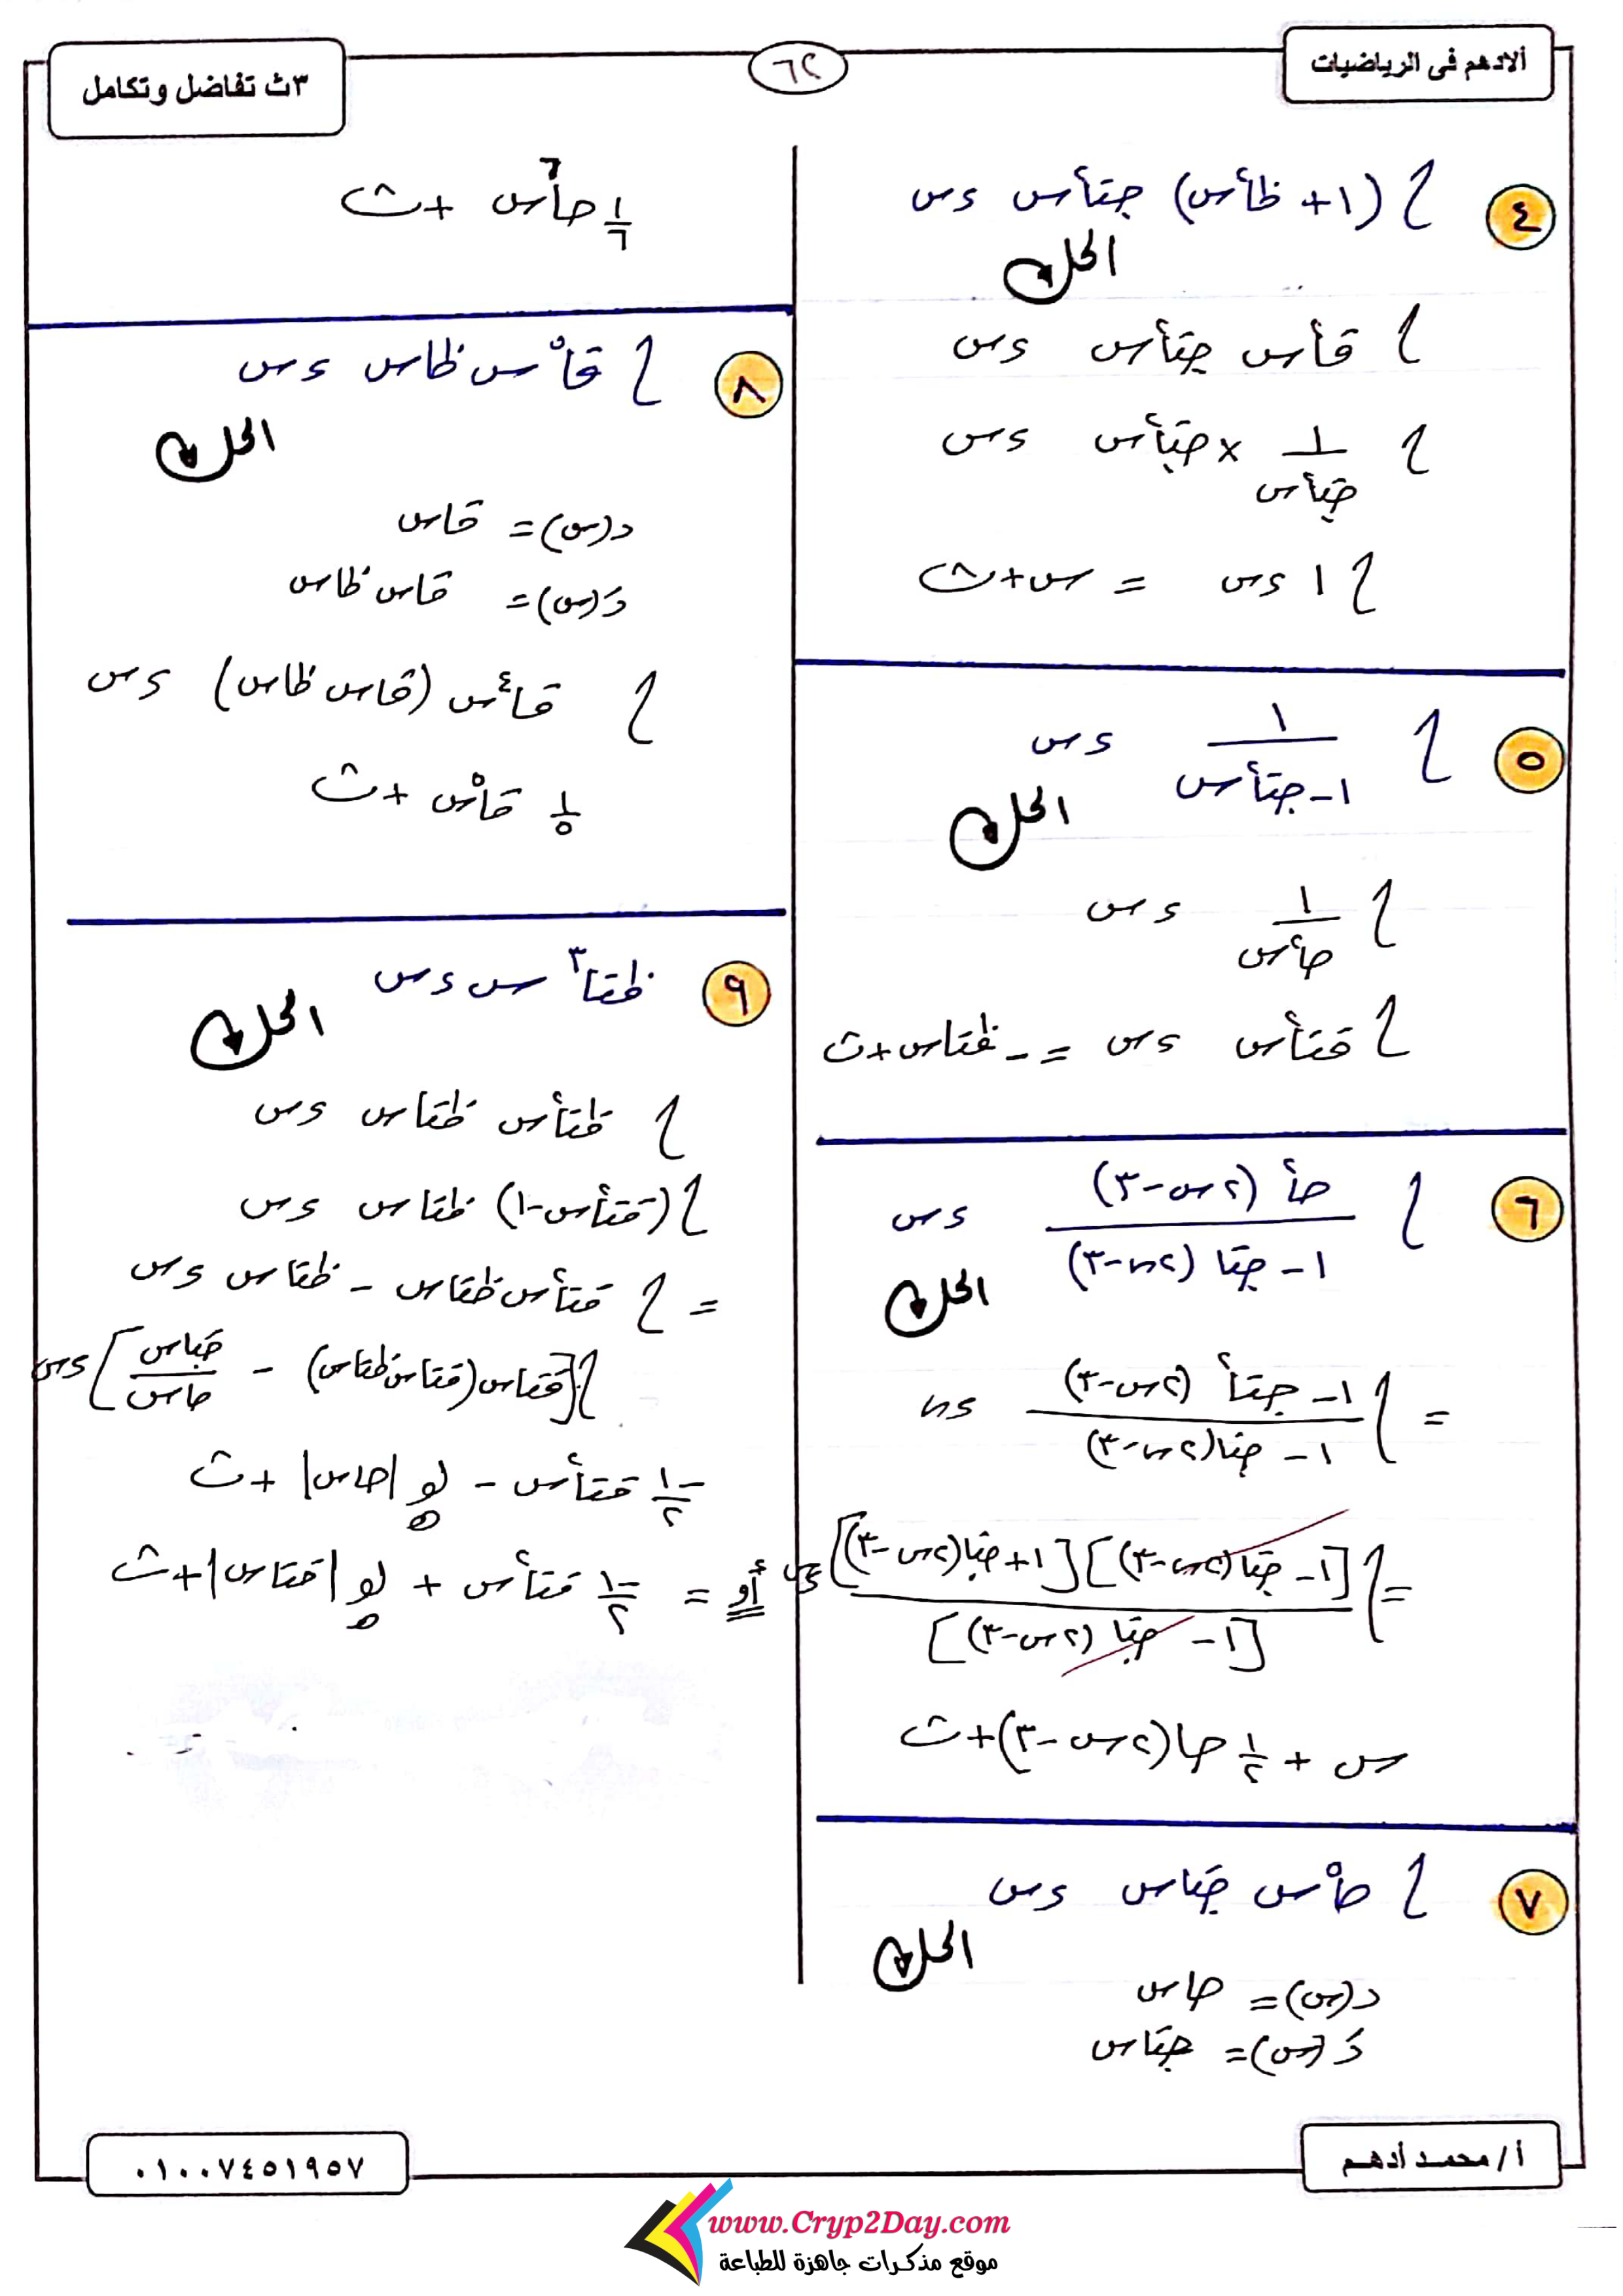 ألادهم فى الرياضيات
٦٢
٣ث تفاضل وتكامل
٤
∫ (١ + ظا²س) جتا²س ءس
الحل
∫ قا²س جتا²س ءس
∫ ١/جتا²س × جتا²س ءس
∫ ١ ءس = س + ث
٥
∫ ١/(١ - جتا²س) ءس
الحل
∫ ١/حا²س ءس
∫ قتا²س ءس = - ظتاس + ث
٦
∫ حا² (٢س - ٣)/(١ - جتا (٢س - ٣)) ءس
الحل
= ∫ (١ - جتا² (٢س - ٣))/(١ - جتا (٢س - ٣)) ءس
= ∫ [١ - جتا (٢س - ٣)] [١ + جتا (٢س - ٣)]/[١ - جتا (٢س - ٣)] ءس
س + ١/٢ حا (٢س - ٣) + ث
٧
∫ حا⁵س جتاس ءس
الحل
د(س) = حاس
دَ(س) = جتاس
١/٦ حا⁶س + ث
٨
∫ قا⁵س ظاس ءس
الحل
د(س) = قاس
دَ(س) = قاس ظاس
∫ قا⁴س (قاس ظاس) ءس
١/٥ قا⁵س + ث
٩
ظتا³ س ءس
الحل
∫ ظتا²س ظتاس ءس
∫ (قتا²س - ١) ظتاس ءس
= ∫ قتا²س ظتاس - ظتاس ءس
∫ [قتاس (قتاس ظتاس) - جتاس/حاس] ءس
-١/٢ قتا²س - لو_ه |حاس| + ث
أو = -١/٢ قتا²س + لو_ه |قتاس| + ث
أ / محمد أدهم
٠١٠٠٧٤٥١٩٥٧
www.Cryp2Day.com
موقع مذكرات جاهزة للطباعة